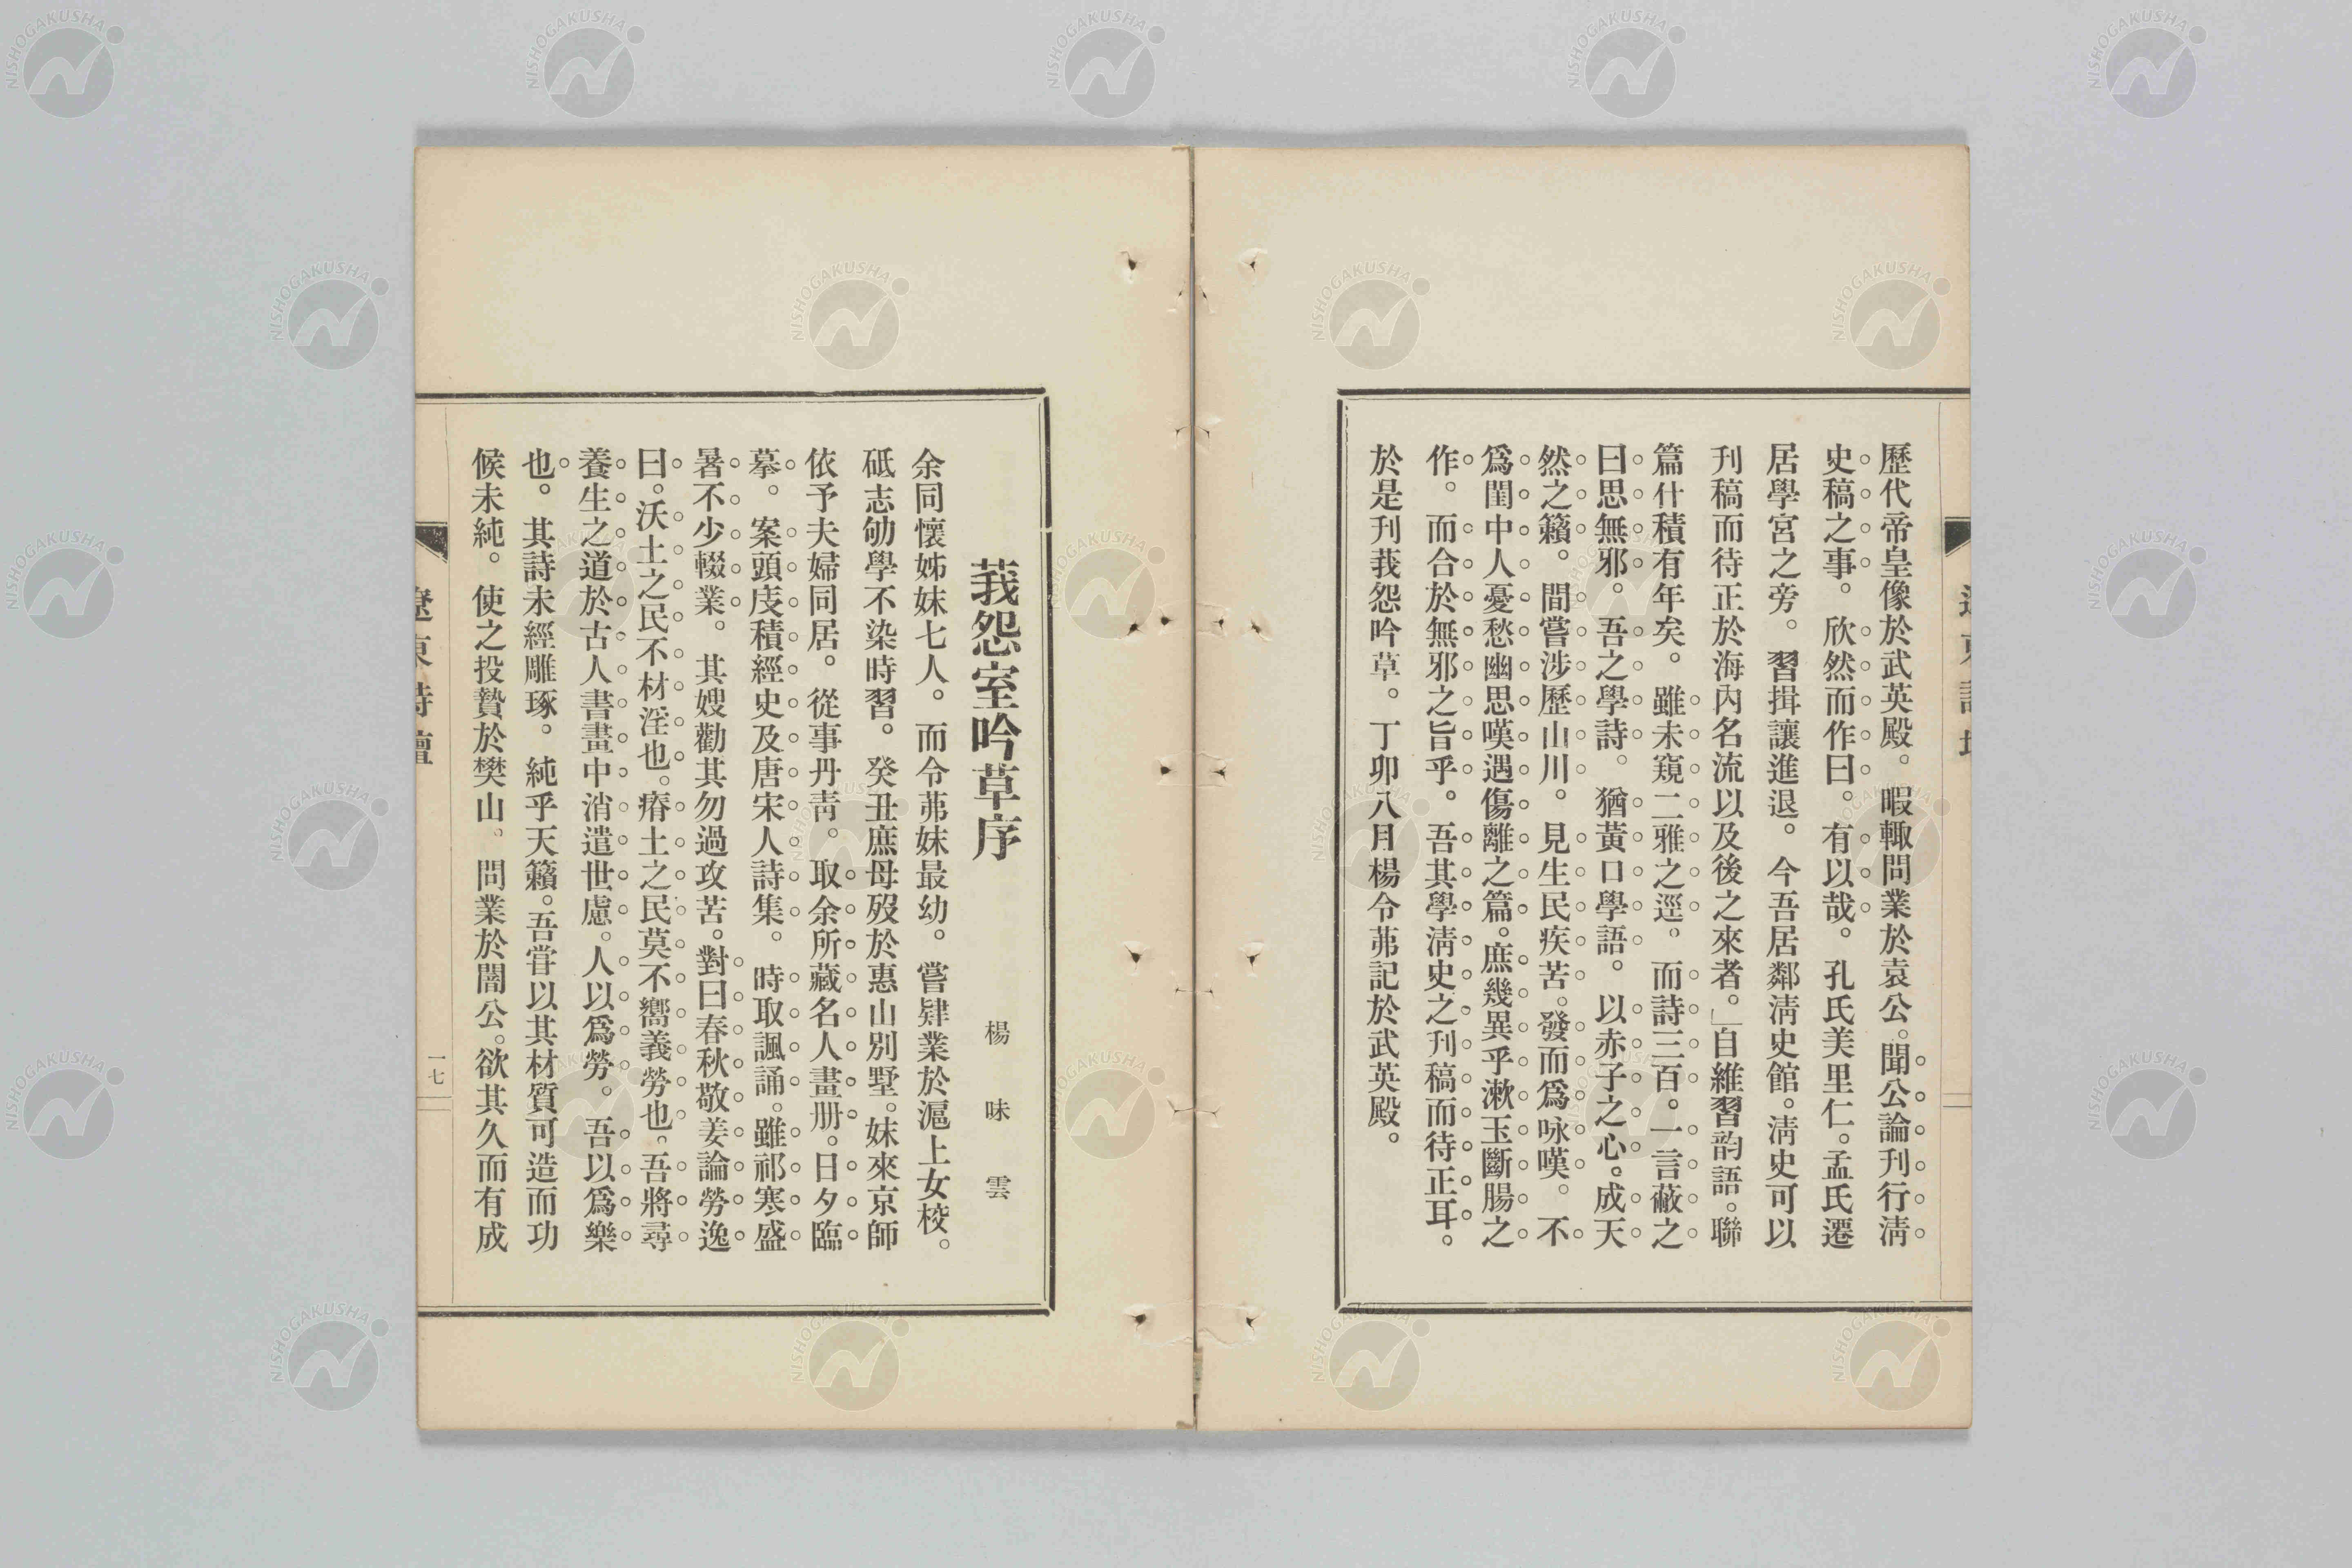 歷代帝皇像於武英殿。暇輙問業於袁公。聞公論刊行淸
史稿之事。欣然而作曰。有以哉。孔氏美里仁。孟氏遷
居學宮之旁。習揖讓進退。今吾居鄰淸史館。淸史可以
刊稿而待正於海內名流以及後之來者。」自維習韵語。聯
篇什積有年矣。雖未窺二雅之逕。而詩三百。一言蔽之
曰思無邪。吾之學詩。猶黃口學語。以赤子之心。成天
然之籟。間嘗涉歷山川。見生民疾苦。發而爲咏嘆。不
爲閨中人憂愁幽思嘆遇傷離之篇。庶幾異乎漱玉斷腸之
作。而合於無邪之旨乎。吾其學淸史之刊稿而待正耳。
於是刊莪怨吟草。丁卯八月楊令茀記於武英殿。
遼東詩壇
莪怨室吟草序
楊味雲
余同懷姊妹七人。而令茀妹最幼。嘗肄業於滬上女校。
砥志劬學不染時習。癸丑庶母歿於惠山別墅。妹來京師
依予夫婦同居。從事丹靑。取余所藏名人畫册。日夕臨
摹。案頭庋積經史及唐宋人詩集。時取諷誦。雖祁寒盛
暑不少輟業。其嫂勸其勿過攻苦。對曰春秋敬姜論勞逸
曰。沃土之民不材淫也。瘠土之民莫不嚮義勞也。吾將尋
養生之道於古人書畫中消遣世慮。人以爲勞。吾以爲樂
也。其詩未經雕琢。純乎天籟。吾甞以其材質可造而功
候未純。使之投贄於樊山。問業於闇公。欲其久而有成
遼東詩壇
一七
NISHOGAKUSHA